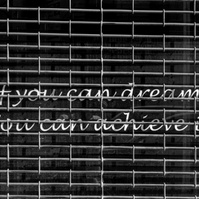 f you can dream
ou can achieve i